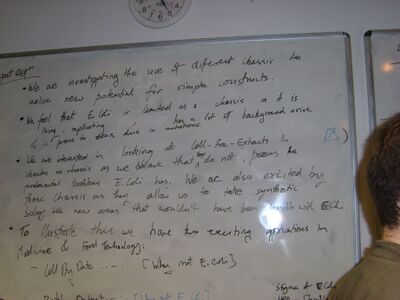 • We are investigating the use of different chassis to
realise new potential for simple constructs.
• We feel that E.Coli is limited as a chassis as it is
living, replicating has a lot of background noise
& is prone to errors due to mutations.
• We are interested in looking at Cell-free-Extracts &
Vesicles as chassis as we believe that they do not possess the
fundamental problems E.Coli has. We are also excited by
these chassis as they allow us to take synthetic
biology into new areas that wouldn't have been possible with E.Coli.
• To illustrate this we have two exciting applications in
Medicine & Food Technology:
- Cell By Date ..... [Why not E.coli]